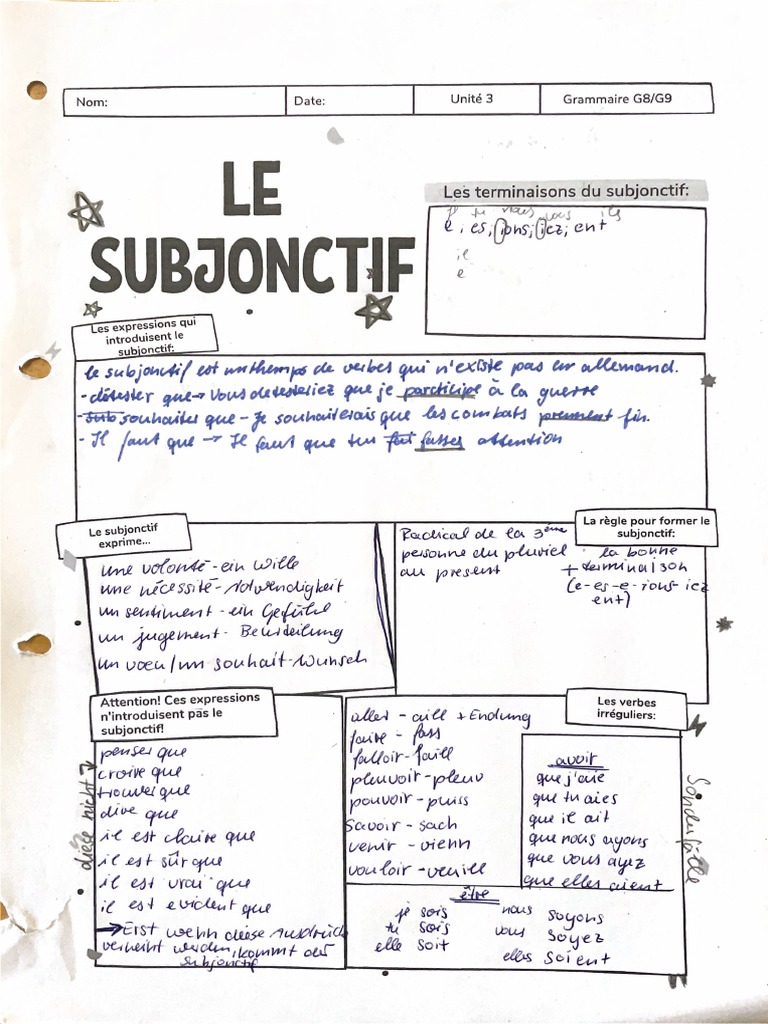 Nom:
Date:
Unité 3
Grammaire G8/G9
LE
SUBJONCTIF
Les terminaisons du subjonctif:
je tu nous vous ils
e, es, ions, iez, ent
il
e
Les expressions qui
introduisent le
subjonctif:
le subjonctif est un themps de verbes qui n'existe pas en allemand.
- détester que → Vous detesteriez que je participe à la guerre
- sub souhaiter que - Je souhaiterais que les combats prennent fin.
- Il faut que → Il faut que tu fai fasses attention
Le subjonctif
exprime...
une volonté - ein Wille
une nécessité - Notwendigkeit
un sentiment - ein Gefühl
un jugement - Beurteilung
un vœu/un souhait - Wunsch
La règle pour former le
subjonctif:
Radical de la 3ème
personne du pluriel
au present
la bonne
+ terminaison
(e-es-e-ions-iez
ent)
Attention! Ces expressions
n'introduisent pas le
subjonctif!
diese nicht
penser que
croire que
trouver que
dire que
il est claire que
il est sûr que
il est vrai que
il est evident que
→ Erst wenn diese Ausdrück
verneint werden, kommt der
subjonctif
Les verbes
irréguliers:
aller - aill + Endung
faire - fass
falloir - faill
pleuvoir - pleuv
pouvoir - puiss
savoir - sach
venir - vienn
vouloir - veuille
Sonderfälle
avoir
que j'aie
que tu aies
que il ait
que nous ayons
que vous ayez
que elles aient
être
je sois
tu sois
elle soit
nous soyons
vous soyez
elles soient